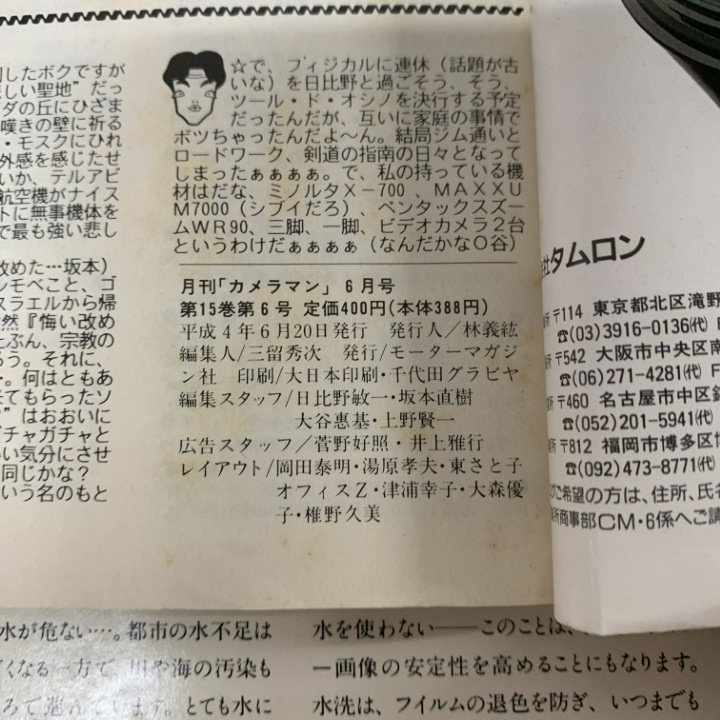 ☆で、フィジカルに連休（話題が古
いな）を日比野と過ごそう、そう、
ツール・ド・オシノを決行する予定
だったんだが、互いに家庭の事情で
ボツちゃったんだよ～ん。結局ジム通いと
ロードワーク、剣道の指南の日々となって
しまったぁぁぁぁ。で、私の持っている機
材はだな、ミノルタX－700、MAXXU
M7000（シブイだろ）、ペンタックスズー
ムWR90、三脚、一脚、ビデオカメラ2台
というわけだぁぁぁぁ（なんだかなO谷）
月刊「カメラマン」6月号
第15巻第6号 定価400円（本体388円）
平成4年6月20日発行 発行人/林義紘
編集人/三留秀次 発行/モーターマガジ
ン社 印刷/大日本印刷・千代田グラビヤ
編集スタッフ/日比野敏一・坂本直樹
大谷惠基・上野賢一
広告スタッフ/菅野好照・井上雅行
レイアウト/岡田泰明・湯原孝夫・東さと子
オフィスZ・津浦幸子・大森優
子・椎野久美
したボクですが
しい聖地”だっ
ダの丘にひざま
嘆きの壁に祈る
・モスクにひれ
外感を感じたせ
いか、テルアビ
航空機がナイス
トに無事機体を
で最も強い悲し
改めた…坂本）
シモベこと、ゴ
スラエルから帰
然『悔い改め
ぶん、宗教の
ろう。それに、
。何はともあ
てもらったソ
”はおおいに
ガチャガチャと
い気分にさせ
同じかな？
いう名のもと
社タムロン
〒114 東京都北区滝野
☎(03)3916-0136㈹
〒542 大阪市中央区南
☎(06)271-4281㈹ F
〒460 名古屋市中区
☎(052)201-5941㈹
〒812 福岡市博多区
☎(092)473-8771㈹
ご希望の方は、住所、氏名
商事部CM・6係へご請
水が危ない…。都市の水不足は
くなる一方で、川や海の汚染も
ろで進んでいます。とても水に
水を使わない――このことは、
ー画像の安定性を高めることにもなります。
水洗は、フイルムの退色を防ぎ、いつまでも